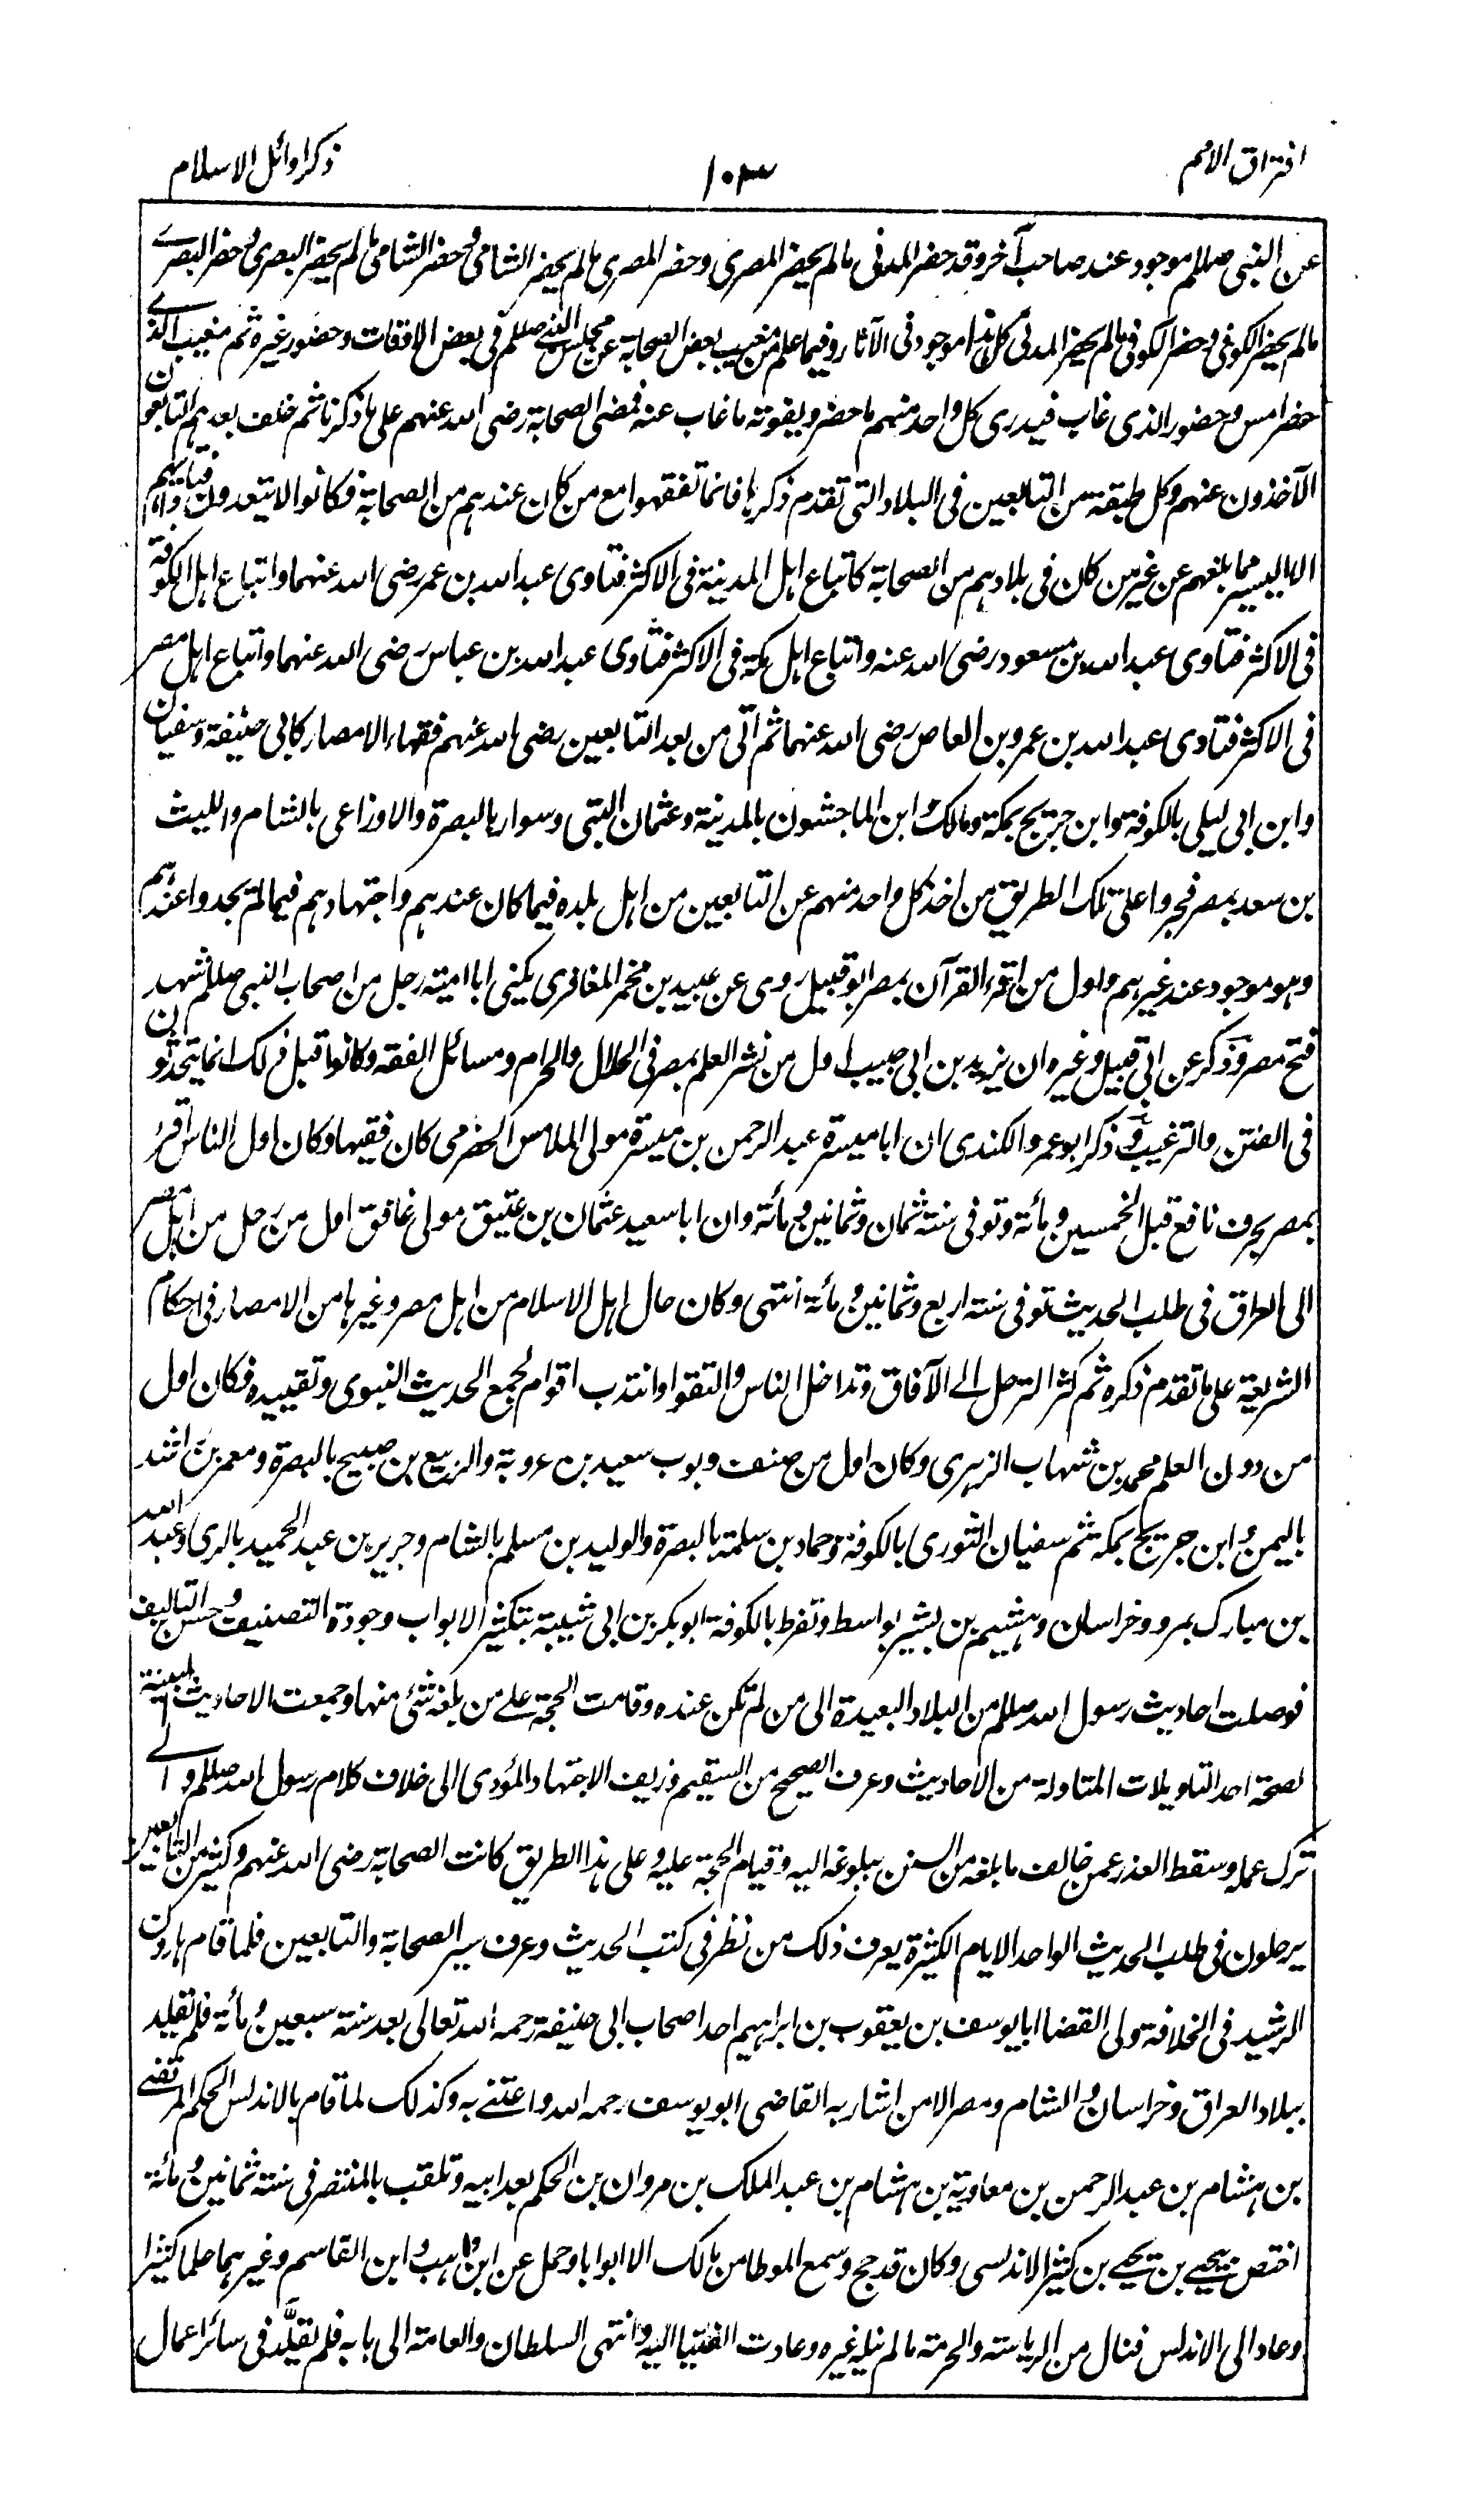 افتراق الامم
١٠٣
ذكر اوائل الاسلام
عن النبي صللم موجود عند صاحب آخر وقد حضر المدنى ما لم يحضر المصرى وحضر المصرى ما لم يحضر الشامى وحضر الشامى ما لم يحضر البصرى وحضر البصرے
ما لم يحضر الكوفى وحضر الكوفى ما لم يحضر المدنى كل هذا موجود فى الآثار وفيما علم من مغيب بعض الصحابة عن مجلس النبے صللم فى بعض الاوقات وحضور غيره ثم مغيب الذے
حضر امس وحضور الذى غاب فيدرى كل واحد منهم ما حضر ويفوته ما غاب عنه فمضى الصحابة رضى الله عنهم على ما ذكرنا ثم خلف بعدهم التابعون
الآخذون عنهم وكل طبقة من التابعين فى البلاد التى تقدم ذكرها فانما تفقهوا مع من كان عندهم من الصحابة فكانوا لا يتعدون فتاويهم
الا اليسير مما بلغهم عن غير من كان فى بلادهم من الصحابة كاتباع اهل المدينة فى الاكثر فتاوى عبد الله بن عمر رضى الله عنهما واتباع اهل الكوفة
فى الاكثر فتاوى عبد الله بن مسعود رضى الله عنه واتباع اهل مكة فى الاكثر فتاوى عبد الله بن عباس رضى الله عنهما واتباع اهل مصر
فى الاكثر فتاوى عبد الله بن عمرو بن العاص رضى الله عنهما ثم اتى من بعد التابعين رضى الله عنهم فقهاء الامصار كابى حنيفة وسفيان
وابن ابى ليلى بالكوفة وابن جريج بمكة ومالك وابن الماجشون بالمدينة وعثمان البتى وسوار بالبصرة والاوزاعى بالشام والليث
بن سعد بمصر فجروا على تلك الطريق من اخذ كل واحد منهم عن التابعين من اهل بلده فيما كان عندهم واجتهادهم فيما لم يجدوا عندهم
وهو موجود عند غيرهم واول من اقرء القرآن بمصر ابو قبيل روى عن عبيد بن مخمر المغافرى يكنى ابا امية رجل من اصحاب النبى صللم شهد
فتح مصر وذكر عن ابى قبيل وغيره ان يزيد بن ابى حبيب اول من نشر العلم بمصر فى الحلال والحرام ومسائل الفقه وكانوا قبل ذلك انما يتحدثون
فى الفتن والترغيب وذكر ابو عمرو الكندى ان ابا ميسرة عبد الرحمن بن ميسرة مولى الملامس الحضرمى كان فقيها وكان اول الناس اقرء
بمصر بحرف نافع قبل الخمسين ومائة وتوفى سنة ثمان وثمانين ومائة وان ابا سعيد عثمان بن عتيق مولى غافق اول من رحل من اهل مصر
الى العراق فى طلب الحديث توفى سنة اربع وثمانين ومائة انتهى وكان حال اهل الاسلام من اهل مصر وغيرها من الامصار فى احكام
الشريعة على ما تقدم ذكره ثم كثر الترحل الے الآفاق وتداخل الناس والتقوا وانتدب اقوام لجمع الحديث النبوى وتقييده فكان اول
من دون العلم محمد بن شهاب الزهرى وكان اول من صنف وبوب سعيد بن عروبة والربيع بن صبيح بالبصرة ومعمر بن راشد
باليمن وابن جريج بمكة ثم سفيان الثورى بالكوفة وحماد بن سلمة بالبصرة والوليد بن مسلم بالشام وجرير بن عبد الحميد بالرى وعبد الله
بن مبارك بمرو وخراسان وهشيم بن بشير بواسط وتفرد بالكوفة ابو بكر بن ابى شيبة بتكثير الابواب وجودة التصنيف وحسن التاليف
فوصلت احاديث رسول الله صللم من البلاد البعيدة الى من لم تكن عنده وقامت الحجة علے من بلغه شئ منها وجمعت الاحاديث المبينة
لصحة احد التاويلات المتاولة من الاحاديث وعرف الصحيح من السقيم وزيف الاجتهاد المؤدى الى خلاف كلام رسول الله صللم والے
ترك عمله وسقط العذر عمن خالف ما بلغه من السنن ببلوغه اليه وقيام الحجة عليه وعلى هذا الطريق كانت الصحابة رضى الله عنهم وكثير من التابعين
يرحلون فى طلب الحديث الواحد الايام الكثيرة يعرف ذلك من نظر فى كتب الحديث وعرف سير الصحابة والتابعين فلما قام هارون
الرشيد فى الخلافة ولى القضا ابا يوسف بن يعقوب بن ابراهيم احد اصحاب ابى حنيفة رحمه الله تعالى بعد سنة سبعين ومائة فلم يقلد
ببلاد العراق وخراسان والشام ومصر الا من اشار به القاضى ابو يوسف رحمه الله واعتنے به وكذلك لما قام بالاندلس الحكم المرتضے
بن هشام بن عبد الرحمن بن معاوية بن هشام بن عبد الملك بن مروان بن الحكم بعد ابيه وتلقب بالمنتصر فى سنة ثمانين ومائة
اختص بيحيے بن يحيے بن كثير الاندلسى وكان قد حج وسمع الموطا من مالك الا ابوابا وحمل عن ابن وهب وابن القاسم وغيرهما علما كثيرا
وعاد الى الاندلس فنال من الرياسة والحرمة ما لم ينله غيره وعادت الفتيا اليه وانتهى السلطان والعامة الى بابه فلم يقلَّد فى سائر اعمال